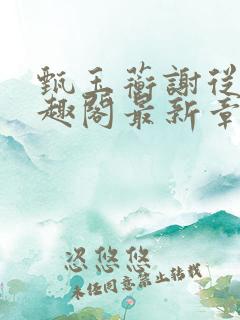 甄玉蘅謝從
趣閣最新章
忩悠悠
未经同意禁止转载